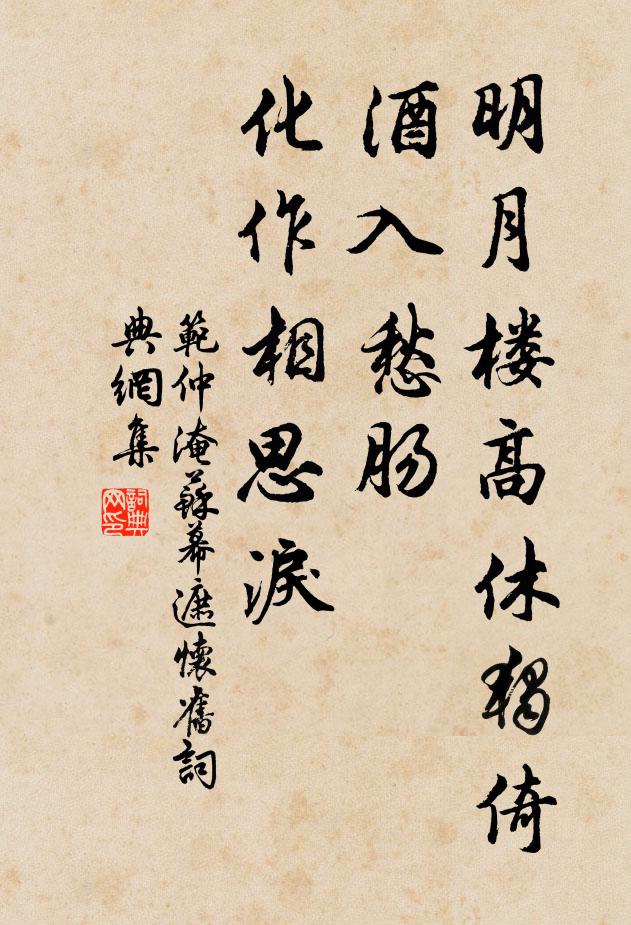 明月楼高休独倚
酒入愁肠
化作相思淚
範仲淹蘇幕遮懷舊詞
典網集
詞典网印